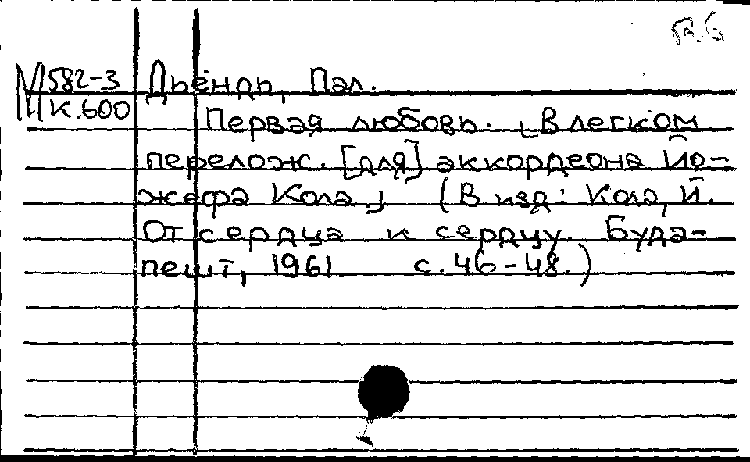 М582-3 Дьёндь, Пал.
К.600 Первая любовь. [В легком
перелож. [для] аккордеона Йо-
жефа Кола.] (В изд: Кола, Й.
От сердца к сердцу. Буда-
пешт, 1961 с. 46-48.)